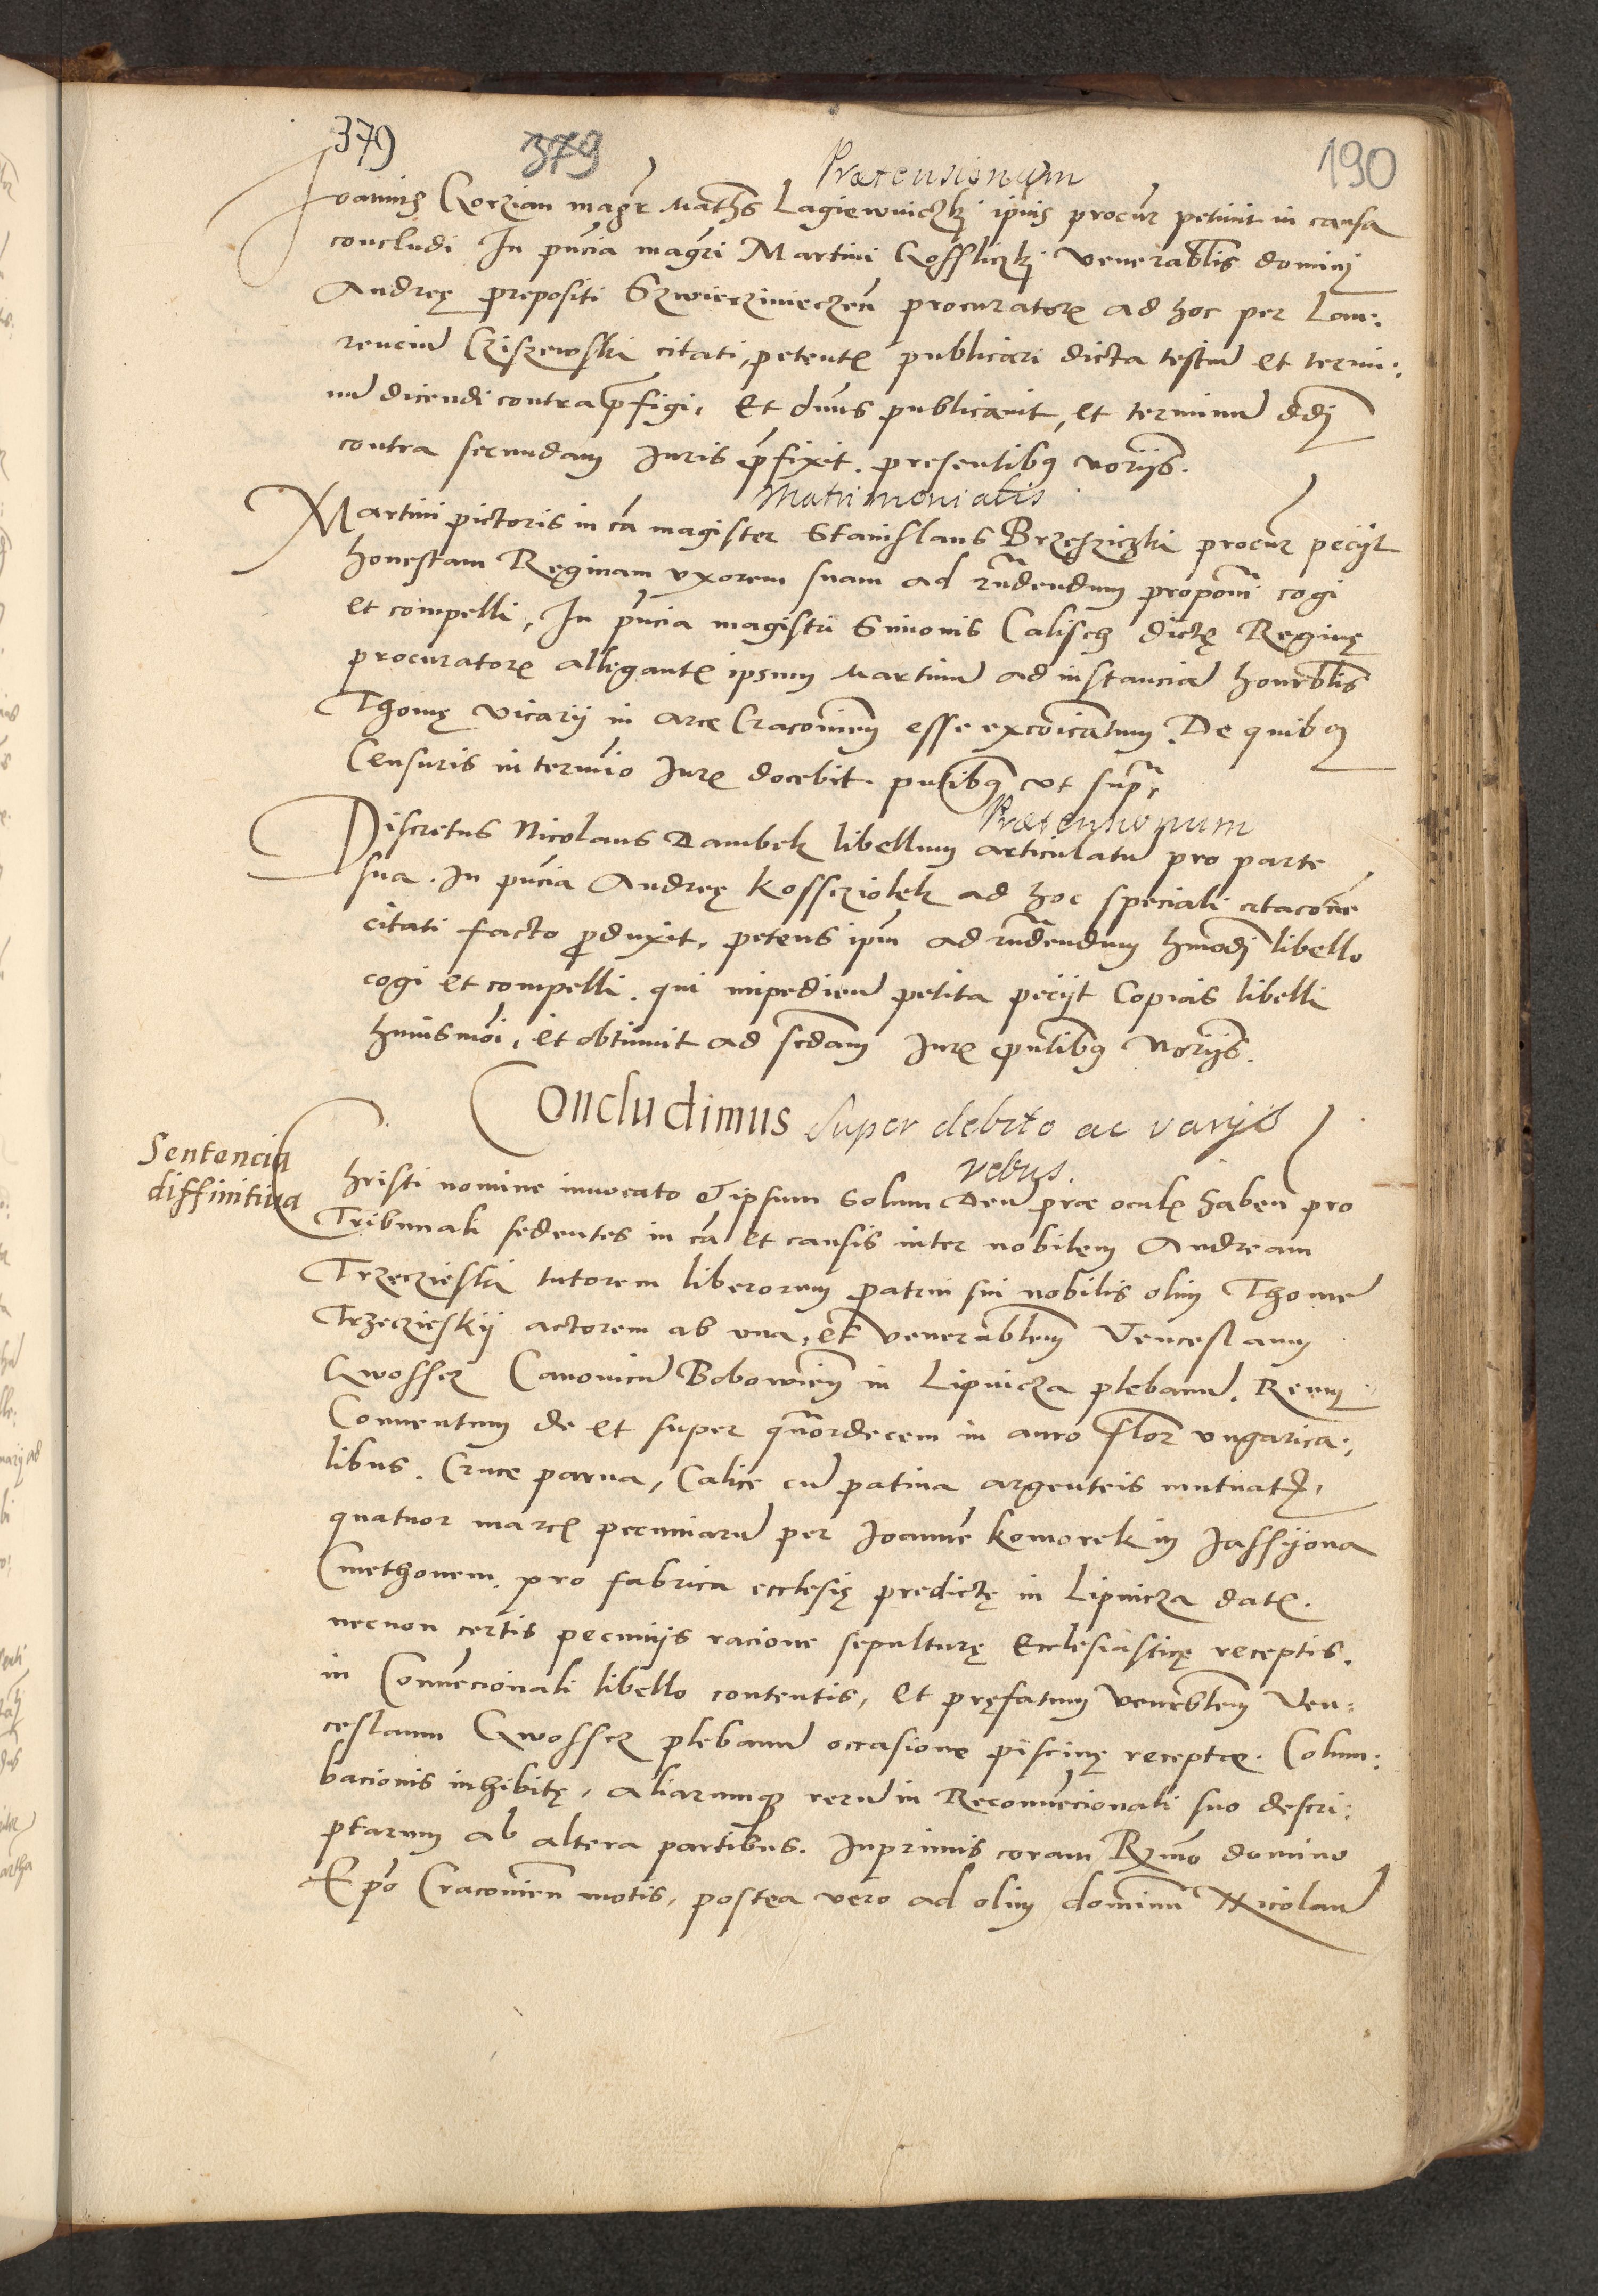 379 379 190
Prætensionum
Joannis Korzian magr Maths Lagiewniczkj ipius procur petiuit in causa
concludi In pncia magri Martini Gossliczkj Venerablis dominj
Andreę prepositi Szwierzinieczen procuratore ad hoc per Lau:
renciu Cziszewski citati, petente publicari dicta testiu et termi:
nu dicendi contra pfigi. Et dnus publicauit, et terminu ddj
contra secundam Juris pfixit. presentibq noriis.
Matrimonialis
Martini pictoris in ca magister Stanislaus Brzęsziczki procur pecijt
honestam Reginam vxorem suam ad rndendum proponi cogi
et compelli, In pncia magistri Simonis Calisch dictę Reginę
procuratore allegante ipsum Martinu ad instanciad honrblis
Thomę vicarij in arce Cracouien esse excoicatum. De quibq
Censuris in termio Jure docebit. pntibq vt supra
Prætensionum
Discretus Nicolaus Dambek libellum articulatu pro parte
sua. In pncia Andreę Kosscziolek ad hoc speciali citacone
citati facto produxit, petens ipm ad rndendum hmodj libello
cogi et compelli. qui impediendo petita pecijt Copias libelli
huiusmoi, et obtinuit ad scdam Jure pntibq Noriis.
Concludimus Super debito ac varijs
rebus.
Sentencia
diffinitiua
Christi nomine inuocato & ipsum Solum Deu præ oculis haben pro
Tribunali sedentes in ca et causis inter nobilem Andream
Trzeczieski tutorem liberorum patrui sui nobilis olim Thome
Trzeczieskij actorem ab vna, et venerablem Venceslaum
Gwosscz Canonicu Bobowien in Lipnicza plebanu. Reum
Conuentum de et super quordecem in auro flor vngarica:
libus. Cruce parua, Calice cu patina argenteis mutuatis,
quatuor marcis pecuniaru per Joanne Komorek in Jassijona
Cmethonem. pro fabrica ecclesię predictę in Lipnicza datis.
necnon certis pecunijs racione sepulturę Ecclesiasticę receptis.
in Conuecionali libello contentis, et pręfatum venrblem Ven:
ceslaum Gwosscz plebanu occasione piscinę receptæ. Colum:
bacionis inhibitę, aliarumqz reru in Reconuecionali suo descri:
ptarum ab altera partibus. Inprimis coram Rmo domino
Epo Cracouien motis, postea vero ad olim dominu Nicolau